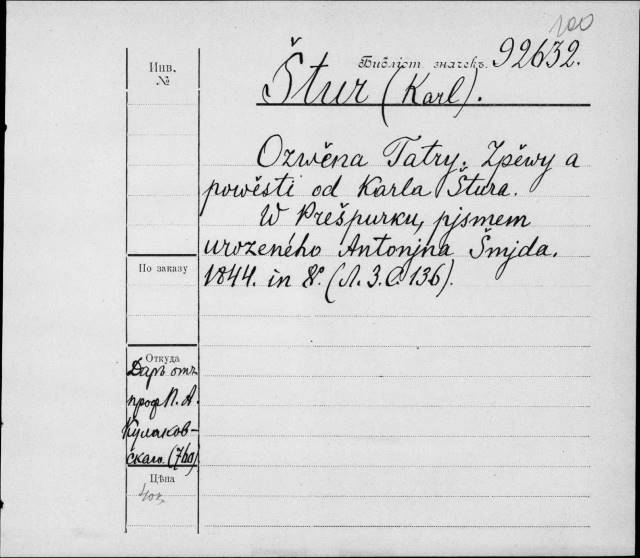 100
Инв.
№
Библіст. значекъ. 92632.
Štur (Karl).
Ozwěna Tatry. Zpěwy a
powěsti od Karla Štura.
W Prešpurku, pjsmem
urozeného Antonjna Šmjda.
1844. in 8º. (Л. 3. С. 136).
По заказу
Откуда
Даръ отъ
проф. П. А.
Кулаков-
скаго. (760)
Цѣна
40к.